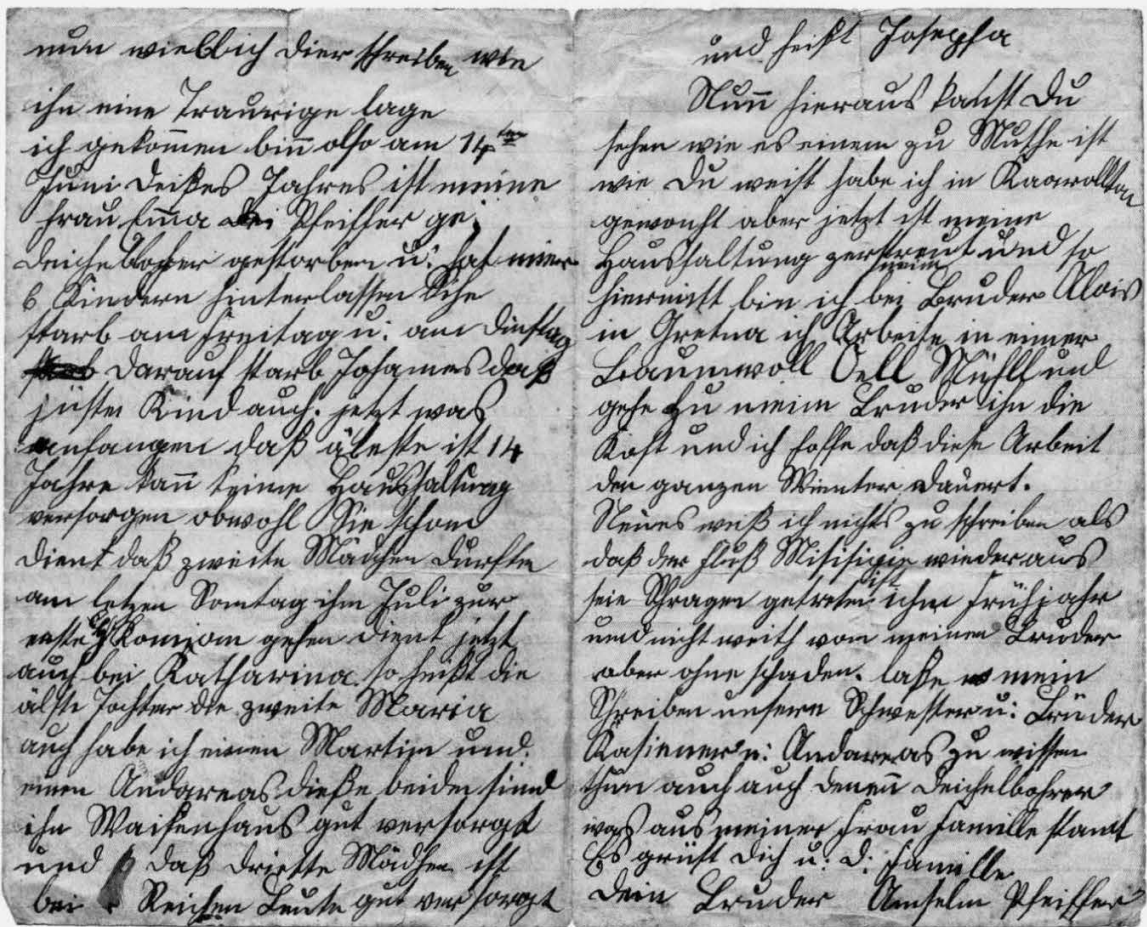 nun will ich Dier schreiben wie
ihn eine Traurige lage
ich gekommen binn also am 14ten
Juni deises Jahres ist meine
Frau Emma Pfeiffer ge;
Deichelbohrer gestorben u: hat mier
6 Kindern hinterlassen Sihe
starb am Freitag u: am Dinstag
darauf starb Johannes daß
jüste Kind auch. jetzt was
anfangen daß älteste ist 14
Jahre kann keine Haushaltung
versorgen obwohl Sie schon
dient daß zweite Mädchen durfte
am letzen Sontag ihm Juli zur
erste Komion gehen dient jetzt
auch bei Katharina so heißt die
älste Tochter die zweite Maria
auch habe ich einen Martin und
einen Andareas dieße beiden sind
ihn Waisenhaus gut versorgt
und daß driette Mädhen ist
bei Reichen Leute gut versorgt
und heißt Josepha
Nunn hieraus kanst Du
sehen wie es einem zu Muthe ist
wie Du weist habe ich in Kaarollton
gewonht aber jetzt ist meine
Haushaltung zerstreut und so
hiermitt bin ich bei meim Bruder Alois
in Gretna ich Arbeite in einer
Baumwoll Oell Mühll und
gehe zu meim Bruder ihn die
Kost und ich hoffe daß diese Arbeit
den ganzen Wienter dauert.
Neues weiß ich nichts zu schreiben als
daß der Fluß Misisipie wieder aus
seie Schragen getreten ist ihm Frühjahr
und nicht weith von meinen Bruder
aber ohne schaden. lasse mein
Schreiben unsere Schwester u: Brüder
Kasiener u: Andareas zu wissen
thun auch auch denenn Deichelbohrer
was aus meiner Frau Familie stamt
Es grüst Dich u: D: Familie
Dein Bruder Anselm Pfeiffer